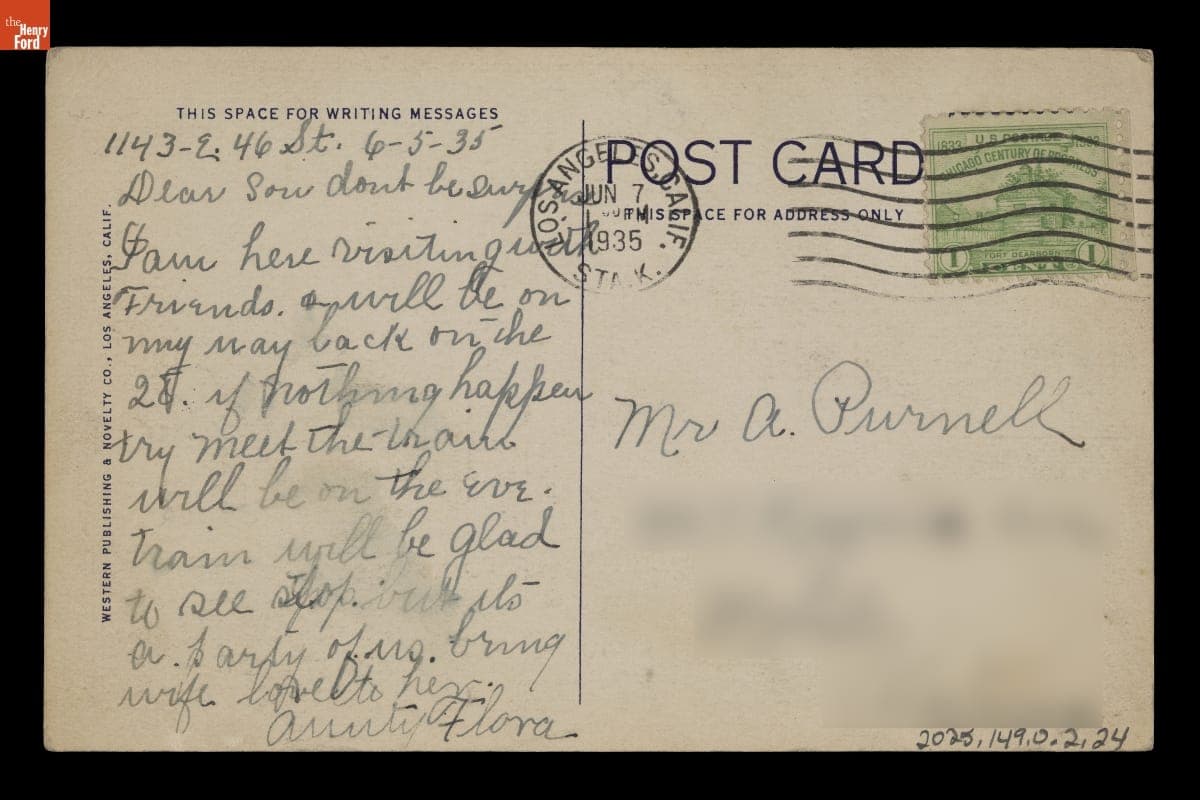 the
Henry
Ford
THIS SPACE FOR WRITING MESSAGES
1143-E. 46 St. 6-5-35
Dear Son dont be surprise
I am here visiting with
Friends. will be on
my way back on the
if nothing happen
try meet the train
will be on the Eve.
train will be glad
to see but its
a. party of us. bring
wife love to her.
Aunty Flora
WESTERN PUBLISHING & NOVELTY CO., LOS ANGELES, CALIF.
POST CARD
THIS SPACE FOR ADDRESS ONLY
LOS ANGELES, CALIF.
JUN 7
1935
STA. K.
U.S. POSTAGE
1833 1933
CHICAGO CENTURY OF PROGRESS
FORT DEARBORN
1 CENT 1
Mr A. Purnell
2025.149.0.2.24